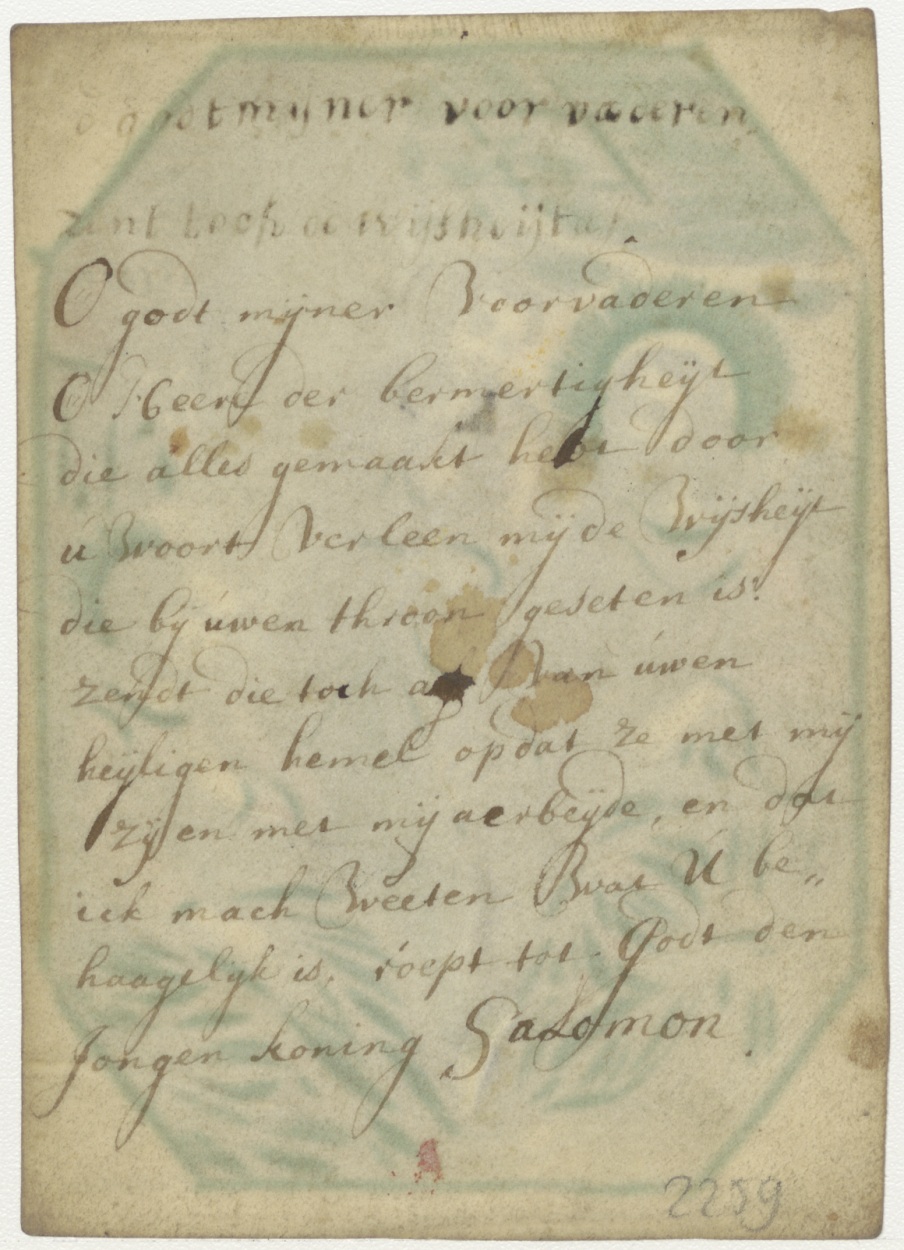 o godt mijner voorvaderen
zent toch de wijsheijt af
O godt mijner Voorvaderen
O Heere der bermertigheijt
die alles gemaakt hebt door
ú Woort Verleen mij de Wijsheijt
die bij úwen throon geseten is:
zendt die toch af van úwen
heijligen hemel opdat ze met mij
zij en met mij aerbeijde, en dat
ick mach Weeten Wat U be„
haagelijk is, roept tot Godt den
Jongen koning Salomon.
2259